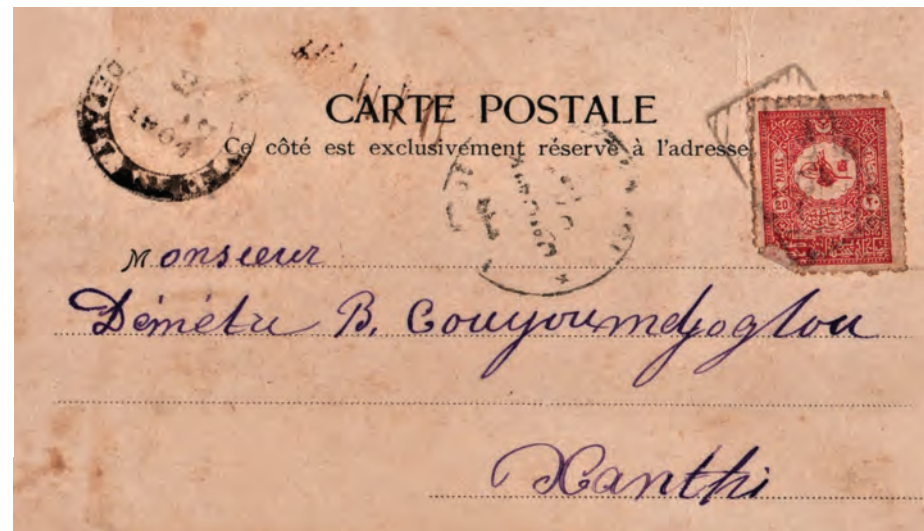 CARTE POSTALE
Ce côté est exclusivement réservé à l'adresse
Monsieur
Démétre B. Couyoumdjoglou
Xanthi
20